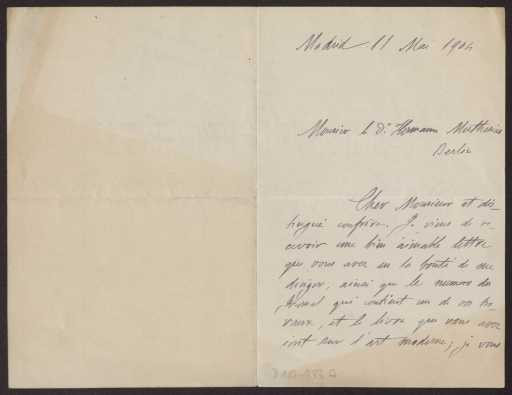 Madrid 11 Mai 1904
Monsieur le Dr Hermann Muthesius
Berlin
Cher Monsieur et dis-
tingué confrère. Je viens de re-
cevoir une bien aimable lettre
que vous avez eu la bonté de me
diriger, ainsi que le numero du
qui contient un de vos tra-
vaux, et le livre que vous avez
écrit sur l'art moderne; je vous